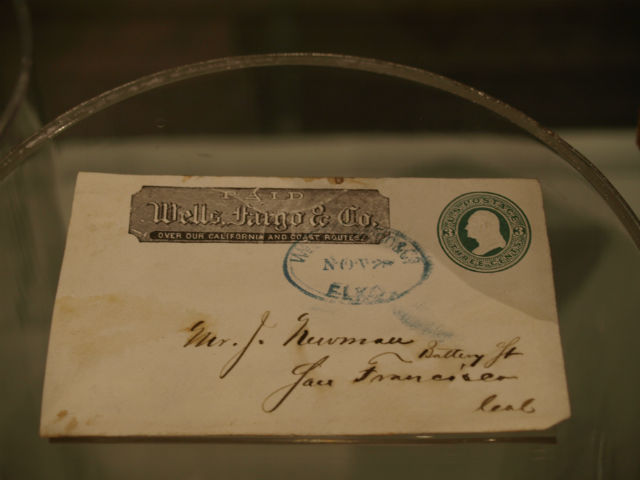 PAID
Wells, Fargo & Co.
OVER OUR CALIFORNIA AND COAST ROUTES
U.S. POSTAGE
3 3
THREE CENTS
NOV
ELKO
Mr. J. Newman
Battery St
San Francisco
Cal